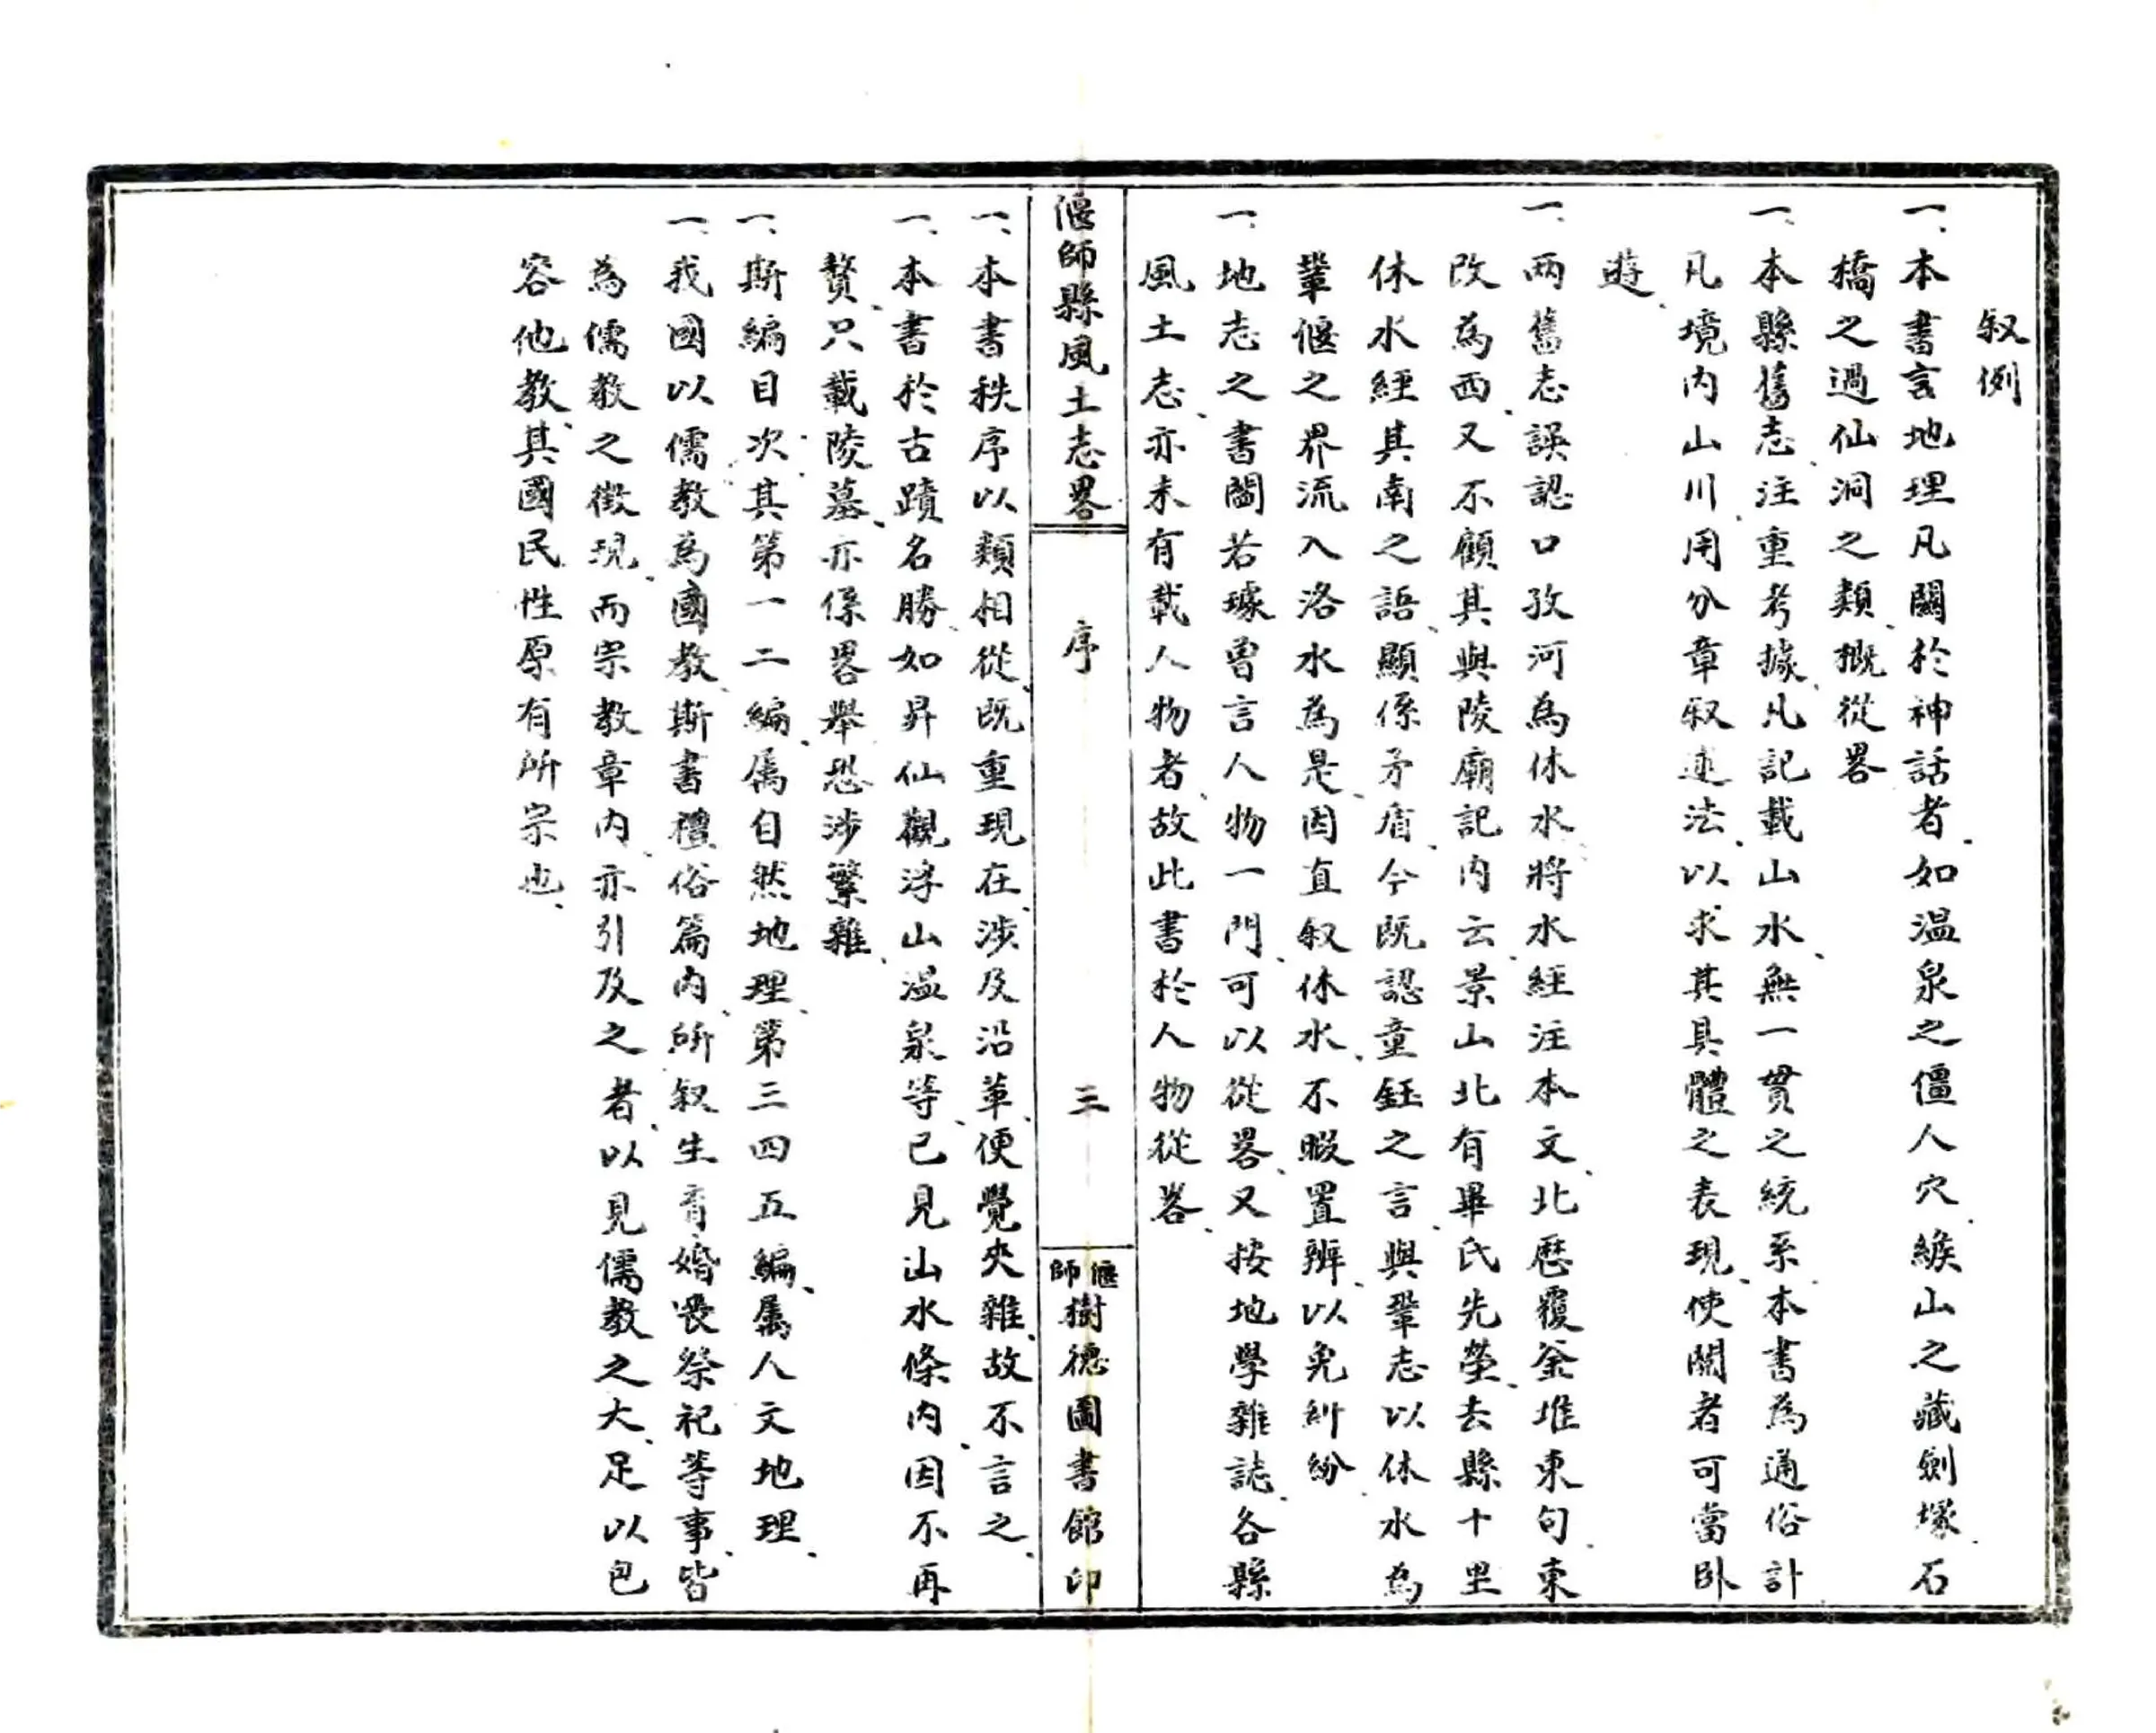 叙例
一、本書言地理凡關於神話者、如温泉之僵人穴、緱山之藏劍塚、石
橋之過仙洞之類、概從畧
一、本縣舊志、注重考據、凡記載山水、無一貫之統系、本書為通俗計
凡境内山川、用分章叙述法、以求其具體之表現、使閱者可當卧
遊、
一、兩舊志誤認口孜河為休水、將水經注本文、北歷覆釜堆東句、東
改為西、又不顧其與陵廟記内云、景山北有畢氏先塋、去縣十里
休水經其南之語、顯係矛盾、今既認童鈺之言、與鞏志以休水為
鞏偃之界流入洛水為是、因直叙休水、不暇置辨、以免糾紛
一、地志之書、閻若璩曾言人物一門、可以從畧、又按地學雜誌、各縣
風土志、亦未有載人物者、故此書於人物從畧、
偃師縣風土志畧
序
三
偃師樹德圖書館印
一、本書秩序以類相從、既重現在、涉及沿革、便覺夾雜、故不言之、
一、本書於古蹟名勝、如昇仙觀浮山温泉等、已見山水條内、因不再
贅、只載陵墓、亦係畧舉、恐涉繁雜、
一、斯編目次、其第一二編、属自然地理、第三四五編、属人文地理、
一、我國以儒教為國教、斯書禮俗篇内、所叙生育婚喪祭祀等事、皆
為儒教之徵現、而宗教章内、亦引及之者、以見儒教之大、足以包
容他教、其國民性原有所宗也、